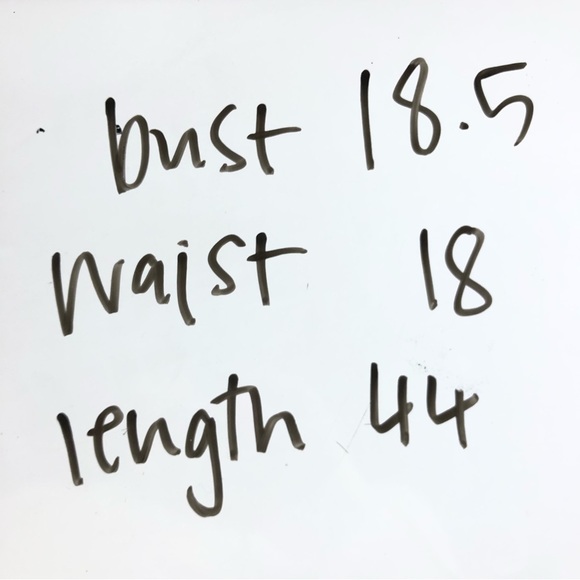 bust 18.5
waist 18
length 44